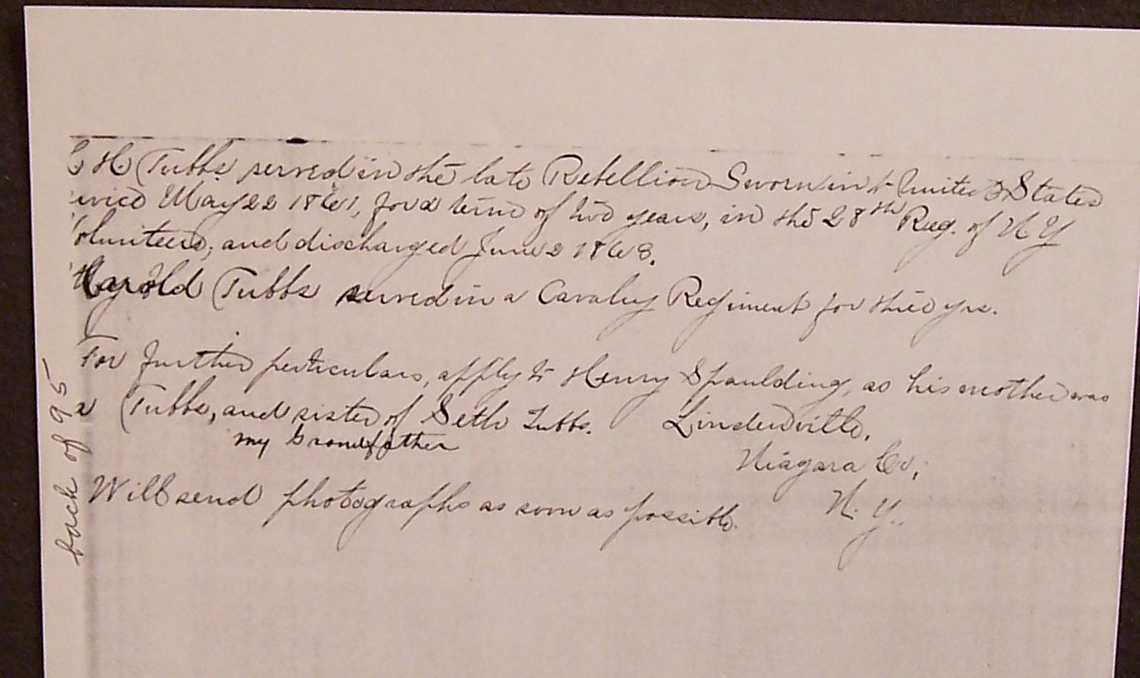 H. Tubbs served in the late Rebellion Sworn in to United States
ervice May 22 1861, for a term of two years, in the 28th Reg. of N Y
Volunteers, and discharged June 2 1863.
Harold Tubbs served in a Cavalry Regiment for three yrs.
For further perticulars, apply to Henry Spaulding, as his mother was
a Tubbs, and sister of Seth Tubbs. Lindenville,
my Grandfather
Niagara Co,
Will send photographs as soon as possible. N. Y.
back of 95